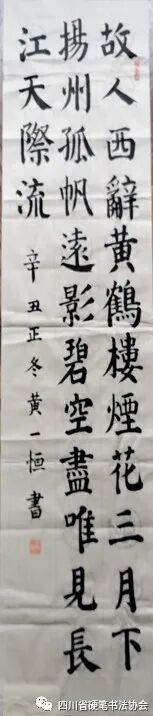 故人西辭黃鶴樓煙花三月下
揚州孤帆遠影碧空盡唯見長
江天際流
辛丑正冬黃一恒書
四川省硬笔书法协会